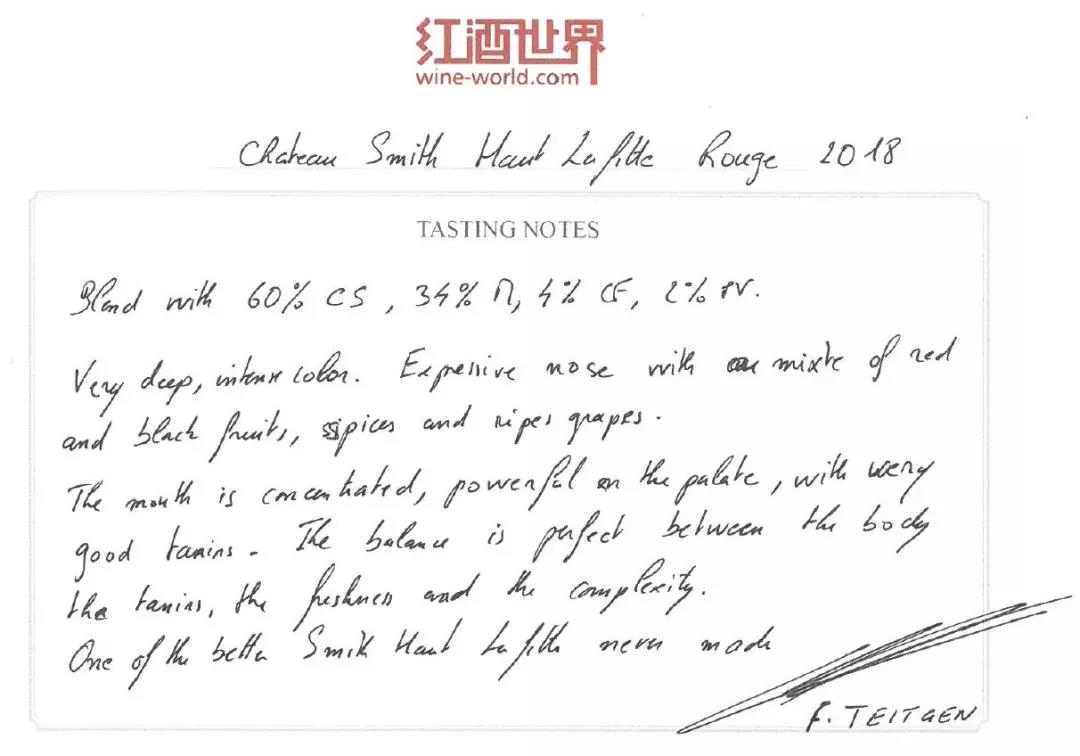 红酒世界
wine-world.com
Chateau Smith Haut Lafitte Rouge 2018
TASTING NOTES
Blend with 60% CS, 34% M, 4% CF, 2% PV.
Very deep, intense color. Expressive nose with a mixte of red
and black fruits, spices and ripes grapes.
The mouth is concentrated, powerful on the palate, with wery
good tanins. The balance is perfect between the body
the tanins, the freshness and the complexity.
One of the better Smith Haut Lafitte never made
F. TEITGEN